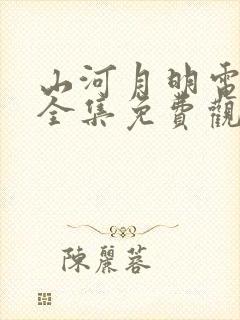 山河月明電
全集免費觀
陳麗蓉